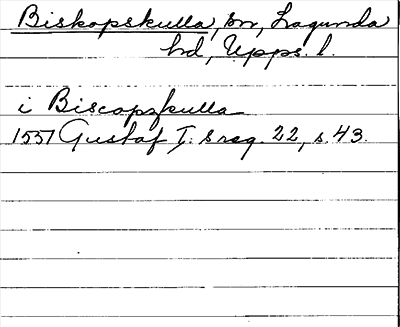 Biskopskulla, sn, Lagunda
hd, Upps. l.
i Biscopzkulla
1557 Gustaf I: s reg. 22, s. 43.